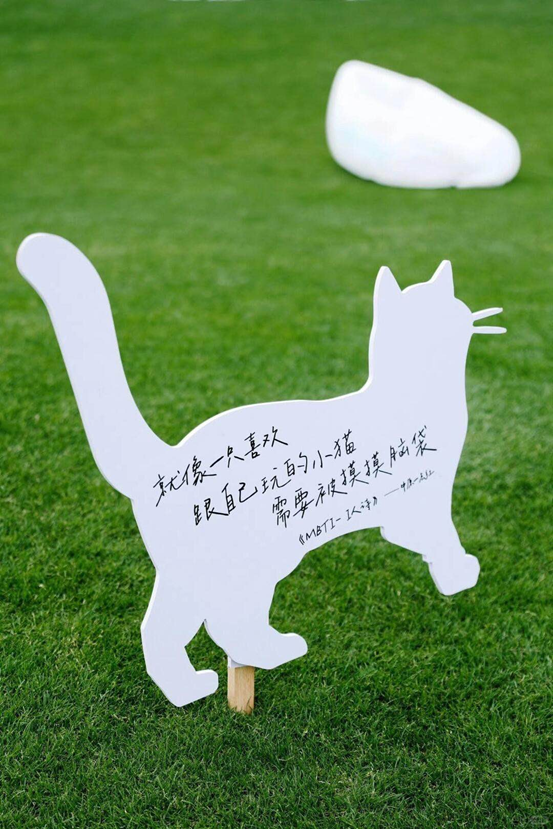 就像一只喜欢
跟自己玩的小猫
需要被摸摸脑袋
《MBTI-I人诗》